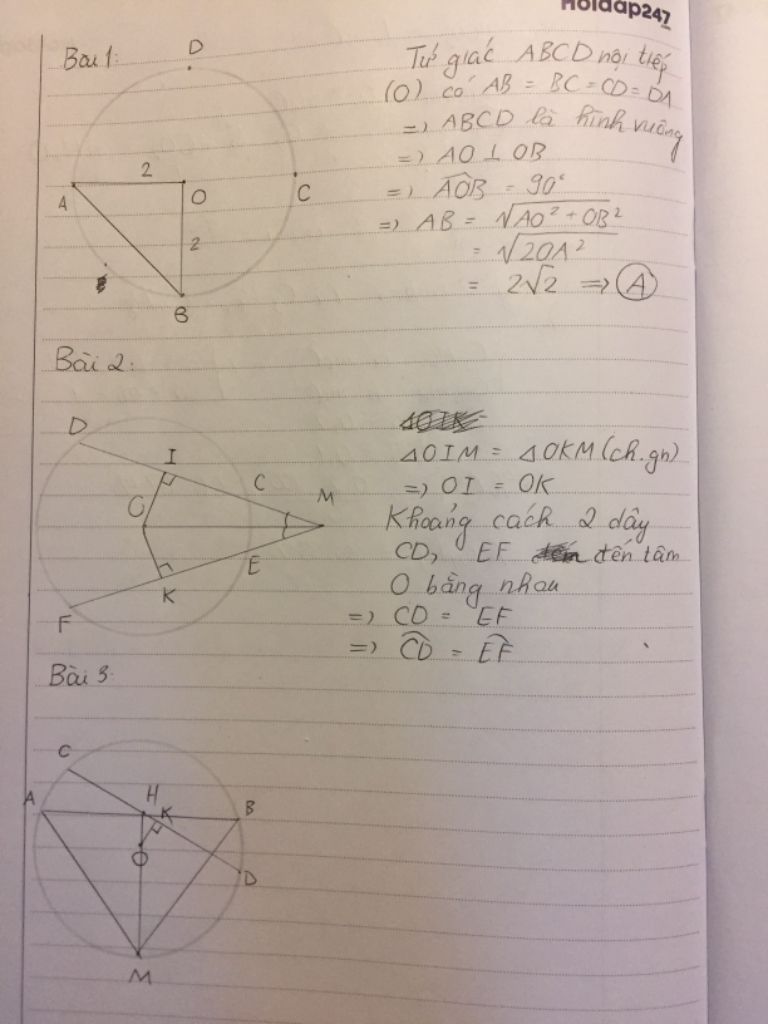 Hoidap247
Bài 1:
D
Tứ giác ABCD nội tiếp
(O) có AB = BC = CD = DA
=> ABCD là hình vuông
=> AO ⊥ OB
2
A
O
C
=> \widehat{AOB} = 90°
=> AB = √(AO² + OB²)
2
= √(2OA²)
= 2√2 => Ⓐ
B
Bài 2:
D
I
C
M
O
E
K
F
ΔOIM = ΔOKM (ch.gn)
=> OI = OK
Khoảng cách 2 dây
CD, EF đến tâm
O bằng nhau
=> CD = EF
=> \widehat{CD} = \widehat{EF}
Bài 3:
C
A
H
K
B
O
D
M